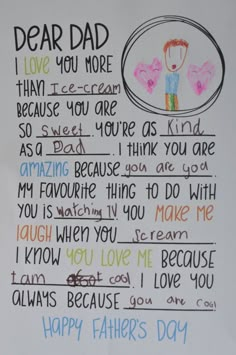 DEAR DAD
I LOVE YOU MORE
THAN Ice-cream
BECAUSE YOU ARE
SO Sweet. YOU'RE AS Kind
AS A Dad. I THINK YOU ARE
AMAZING BECAUSE you are you.
MY FAVOURITE THING TO DO WITH
YOU IS watching TV YOU MAKE ME
LAUGH WHEN YOU Scream.
I KNOW YOU LOVE ME BECAUSE
I am cool. I LOVE YOU
ALWAYS BECAUSE you are cool
HAPPY FATHER'S DAY